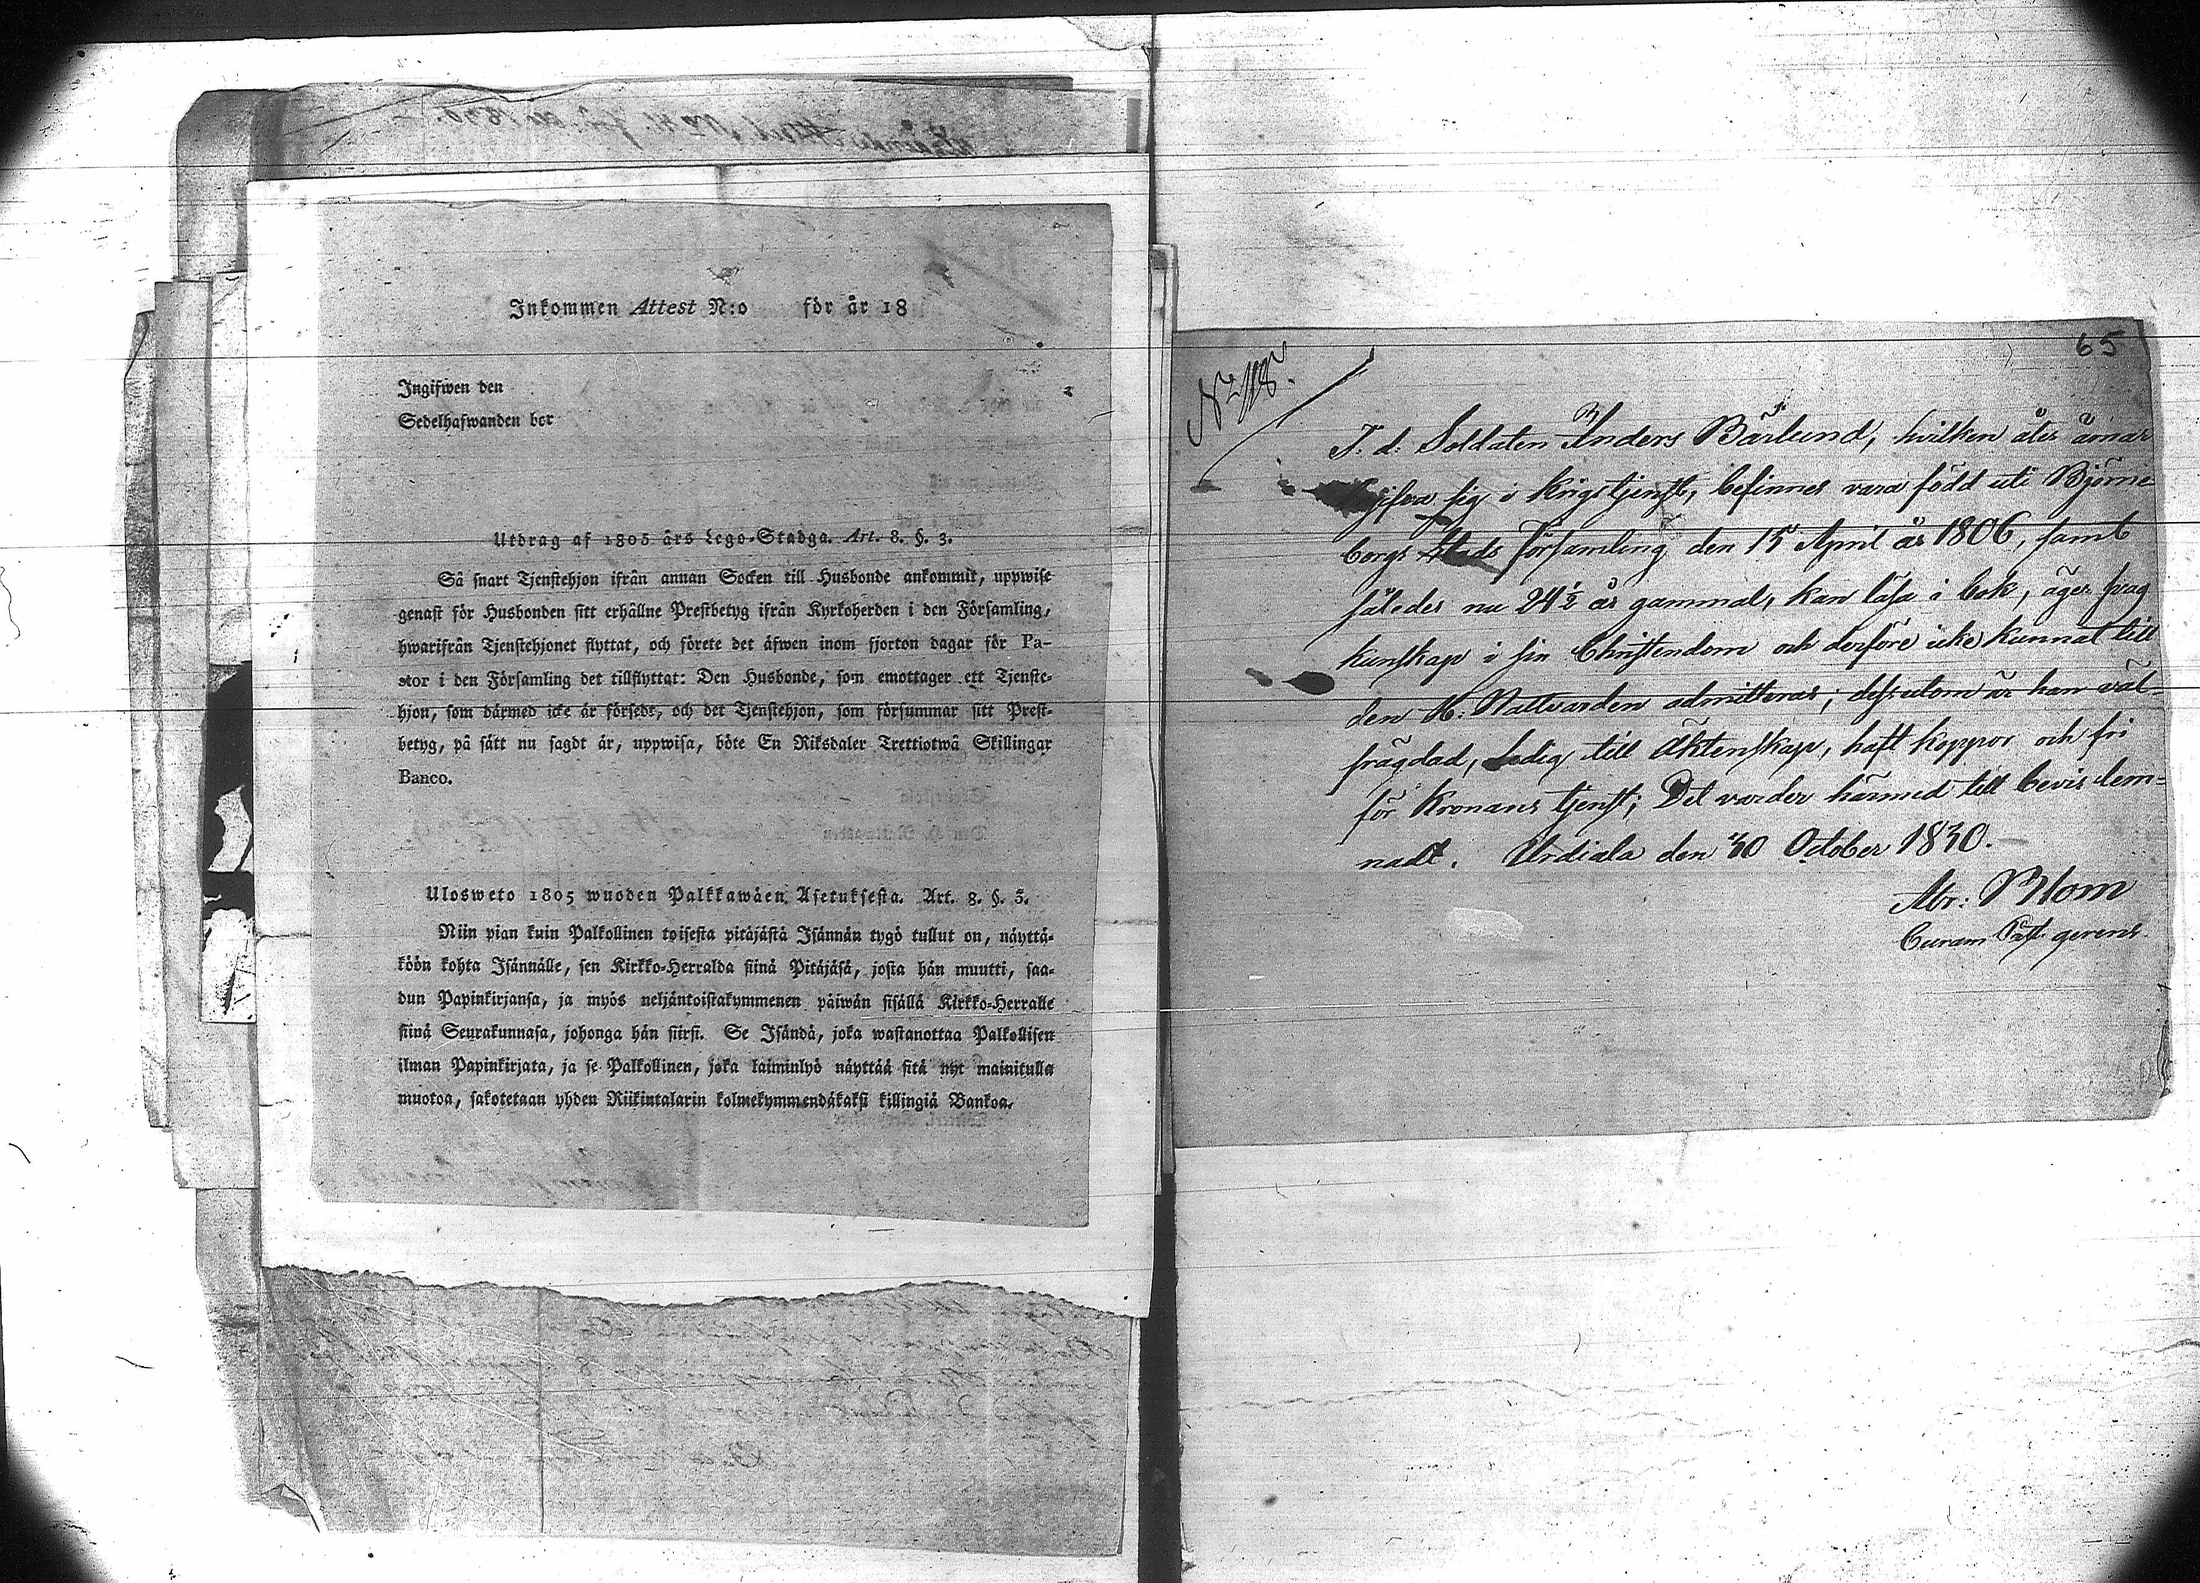 Inkommen Attest N:o för år 18
Ingifwen den
Sedelhafwanden bor
Utdrag af 1805 års Lego-Stadga. Art. 8. §. 3.
Så snart Tjenstehjon ifrån annan Socken till Husbonde ankommit, uppwise
genast för Husbonden sitt erhållne Prestbetyg ifrån Kyrkoherden i den Församling,
hwarifrån Tjenstehjonet flyttat, och förete det äfwen inom fjorton dagar för Pa-
stor i den Församling det tillflyttat: Den Husbonde, som emottager ett Tjenste-
hjon, som därmed icke är försedt, och det Tjenstehjon, som försummar sitt Prest-
betyg, på sätt nu sagdt är, uppwisa, böte En Riksdaler Trettiotwå Skillingar
Banco.
Ulosweto 1805 wuoden Palkkawäen Asetuksesta. Art. 8. §. 3.
Niin pian kuin Palkollinen toisesta pitäjästä Isännän tygö tullut on, näyttä-
köön kohta Isännälle, sen Kirkko-Herralda siinä Pitäjäsä, josta hän muutti, saa-
dun Papinkirjansa, ja myös neljäntoistakymmenen päiwän sisällä Kirkko-Herralle
siinä Seurakunnasa, johonga hän siirsi. Se Isändä, joka wastanottaa Palkollisen
ilman Papinkirjata, ja se Palkollinen, joka laiminlyö näyttää sitä nyt mainitulla
muotoa, sakotetaan yhden Riikintalarin kolmekymmendäkaksi killingiä Bankoa.
65
F. d. Soldaten Anders Bärlund, hvilken åter ämnar
begifva sig i Krigstjenst, befinnes vara född uti Björne-
borgs Stads Församling den 15 April år 1806, samt
således nu 24½ år gammal, kan läsa i bok, äger svag
kunskap i sin Christendom och derföre icke kunnat till
den H. Nattvarden admitteras; dessutom är han väl-
frägdad, Ledig till Äktenskap, haft koppor och fri
för Kronans tjenst; Det varder härmed till bevis lem-
nadt. Urdiala den 30 October 1830.
Abr: Blom
Curam Past. gerens.